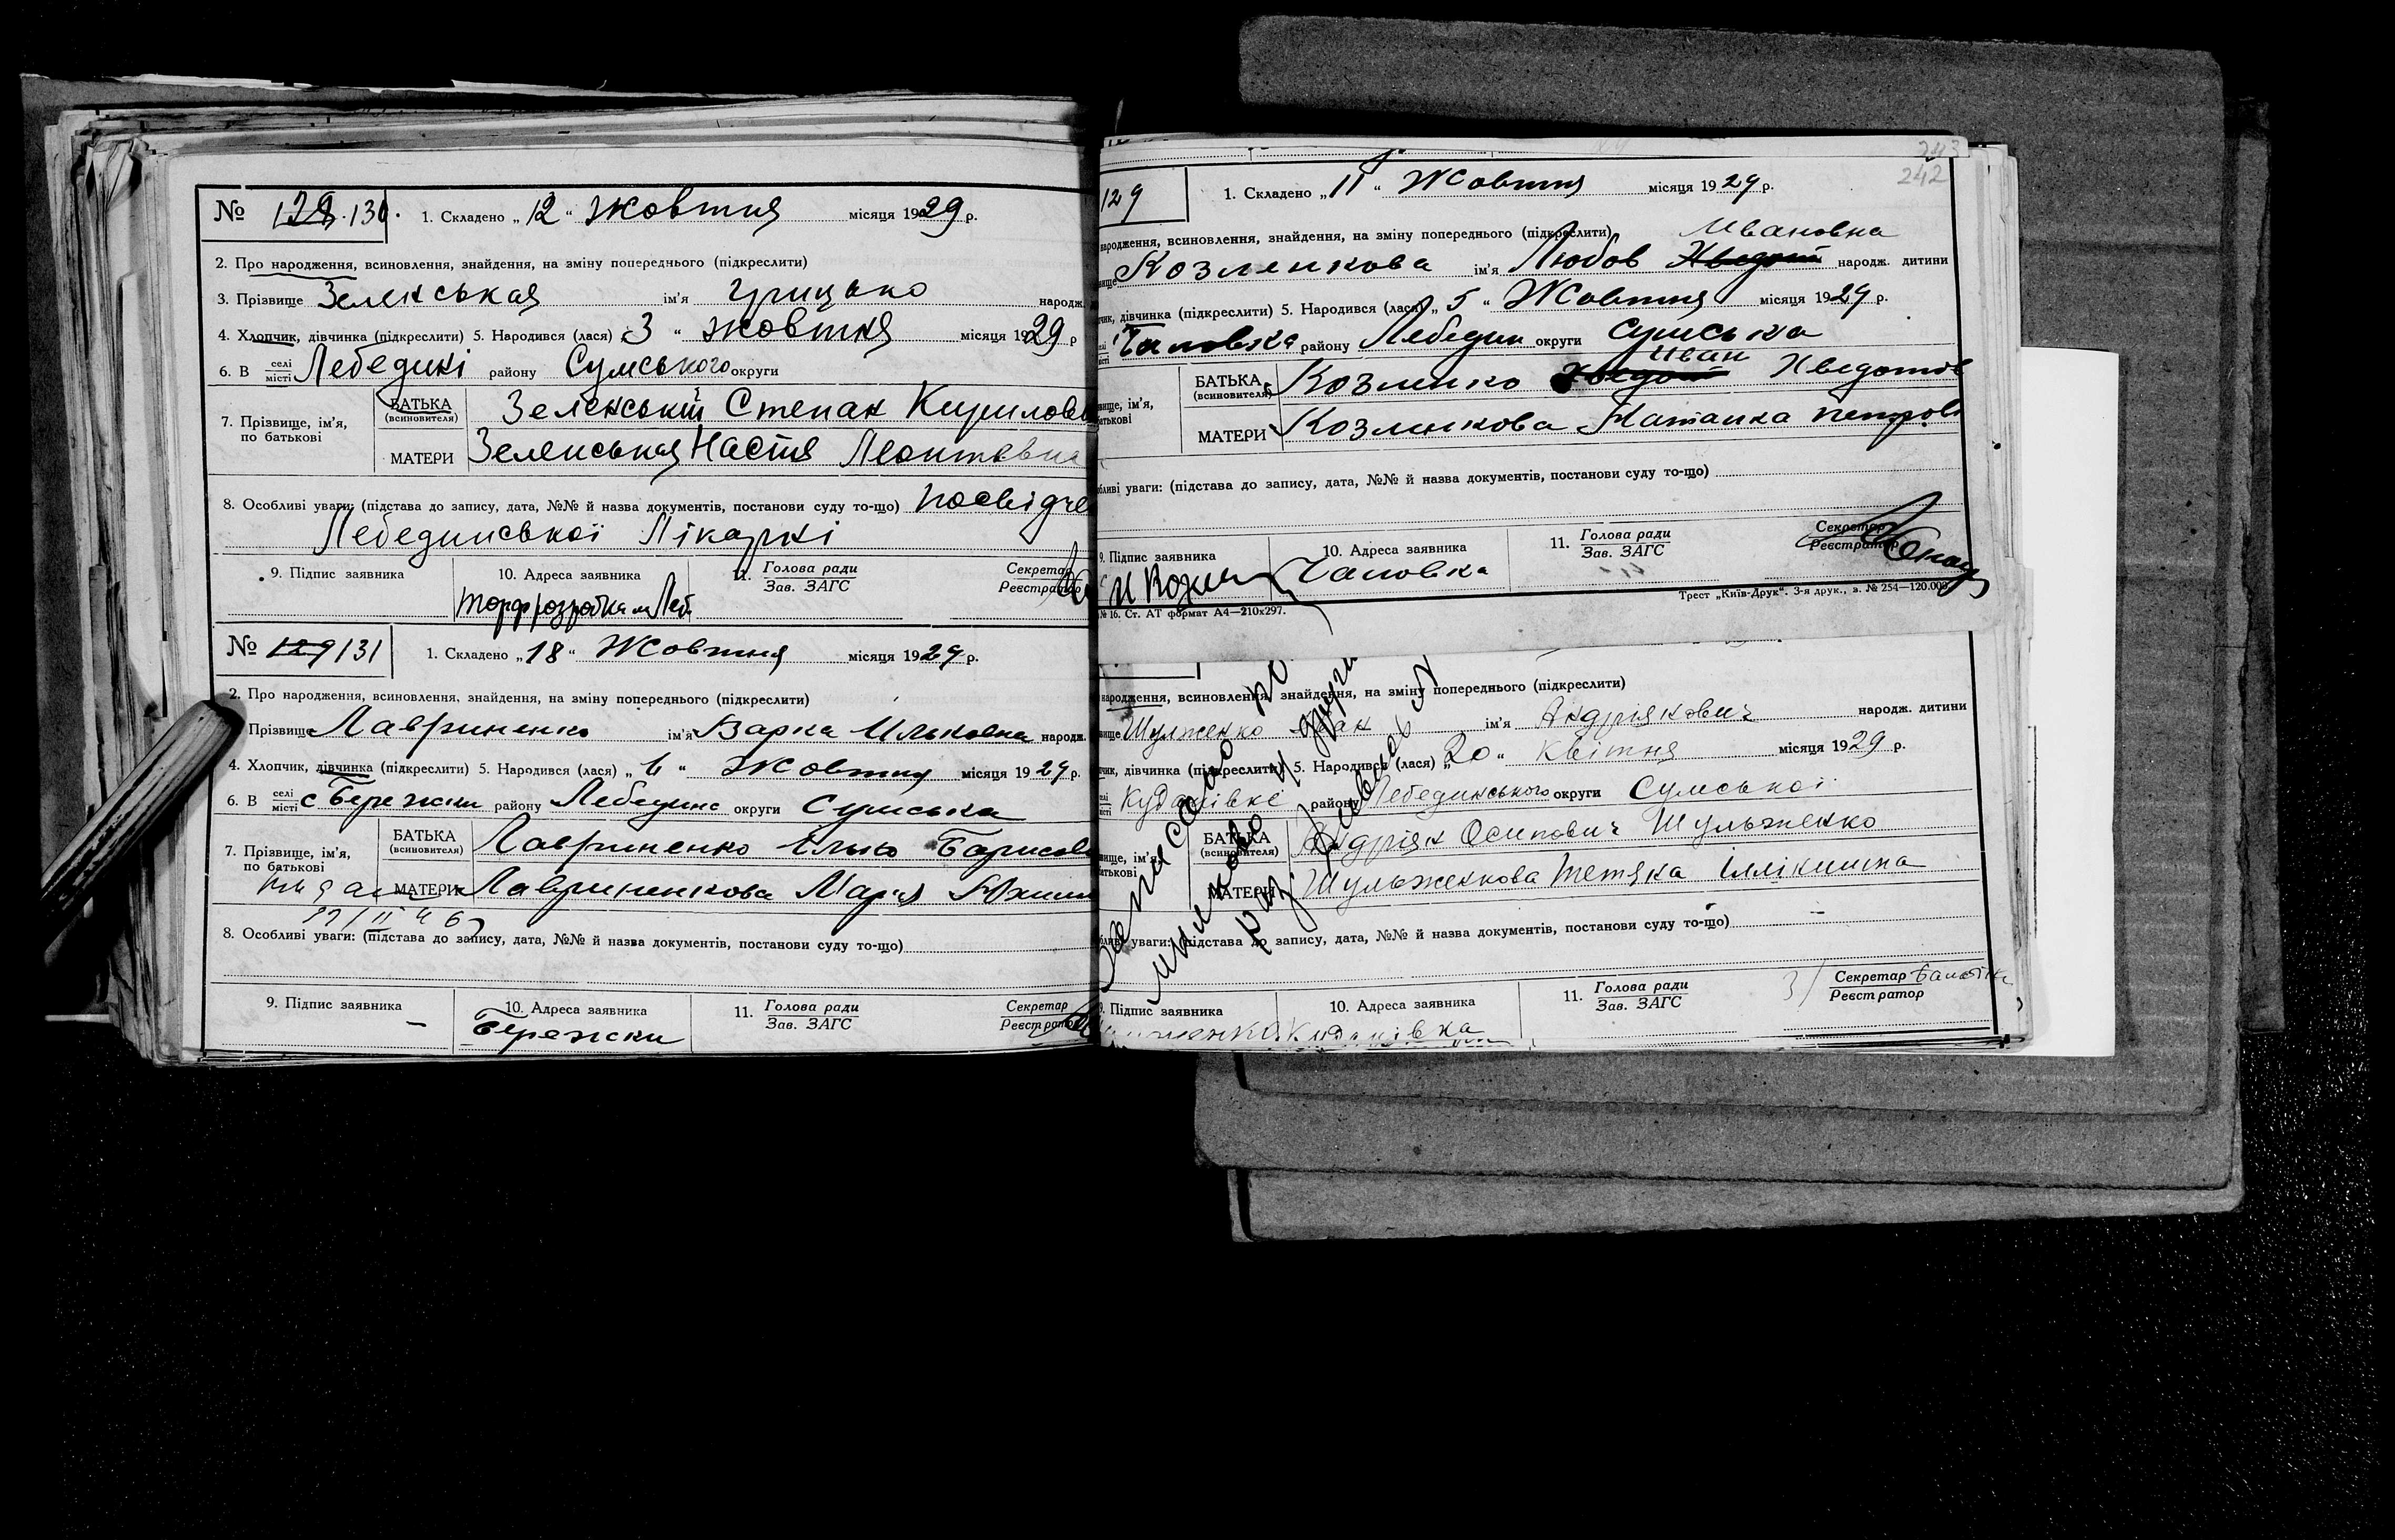 № 128. 130. 1. Складено „ 12 “ жовтня місяця 1929 р.
2. Про народження, всиновлення, знайдення, на зміну попереднього (підкреслити)
3. Прізвище Зеленськая ім'я Грицько народж.
4. Хлопчик, дівчинка (підкреслити) 5. Народився (лася) 3 “ жовтня місяця 1929 р
6. В селі місті Лебедині району Сумського округи
7. Прізвище, ім'я, по батькові
БАТЬКА (всиновителя) Зеленський Степан Кирилови
МАТЕРИ Зеленськая Настя Леонтевна
8. Особливі уваги: (підстава до запису, дата, №№ й назва документів, постанови суду то-що) Посвідче
Лебединської Лікарні
9. Підпис заявника 10. Адреса заявника 11. Голова ради Зав. ЗАГС Секретар Реєстратор
Торфрозробка м Леб
№ 129 131 1. Складено „ 18 “ Жовтня місяця 1929 р.
2. Про народження, всиновлення, знайдення, на зміну попереднього (підкреслити)
Прізвище Лавриненко ім'я Варка Ильковна народж.
4. Хлопчик, дівчинка (підкреслити) 5. Народився (лася) „ “ Жовтня місяця 1929 р.
6. В селі місті с Бережки району Лебединс округи Сумська
7. Прізвище, ім'я, по батькові
БАТЬКА (всиновителя) Лавриненко Илько Барисов
МАТЕРИ Лавриненкова Марія
8. Особливі уваги: (підстава до запису, дата, №№ й назва документів, постанови суду то-що)
9. Підпис заявника 10. Адреса заявника 11. Голова ради Зав. ЗАГС Секретар Реєстратор
– Бережки
243
242
129 1. Складено „ 11 “ Жовтня місяця 1929 р.
народження, всиновлення, знайдення, на зміну попереднього (підкреслити) Ивановна
вище Козленкова ім'я Любов Хведот народж. дитини
чик, дівчинка (підкреслити) 5. Народився (лася) „ 5 “ Жовтня місяця 1929 р.
Чаповка району Лебедин округи Сумська
Иван
вище, ім'я, батькові
БАТЬКА (всиновителя) Козленко Хведот Хведотов
МАТЕРИ Козленкова Наталка петров
бливі уваги: (підстава до запису, дата, №№ й назва документів, постанови суду то-що)
9. Підпис заявника 10. Адреса заявника 11. Голова ради Зав. ЗАГС Секретар Реєстратор
Чаповка
№ 16. Ст. АТ формат А4—210x297. Трест „Київ-Друк“. 3-я друк., з. № 254—120.000.
народження, всиновлення, знайдення, на зміну попереднього (підкреслити)
вище Шулженко ім'я Андріянович народж. дитини
чик, дівчинка (підкреслити) 5. Народився (лася) „ 20 “ Квітня місяця 1929 р.
Куданівкі району Лебединського округи Сумської
вище, ім'я, батькові
БАТЬКА (всиновителя) Андріян Осипович Шульженко
МАТЕРИ Шульженкова Тетяна Іллінишна
бливі уваги: (підстава до запису, дата, №№ й назва документів, постанови суду то-що)
9. Підпис заявника 10. Адреса заявника 11. Голова ради Зав. ЗАГС З/ Секретар Реєстратор
Куданівка